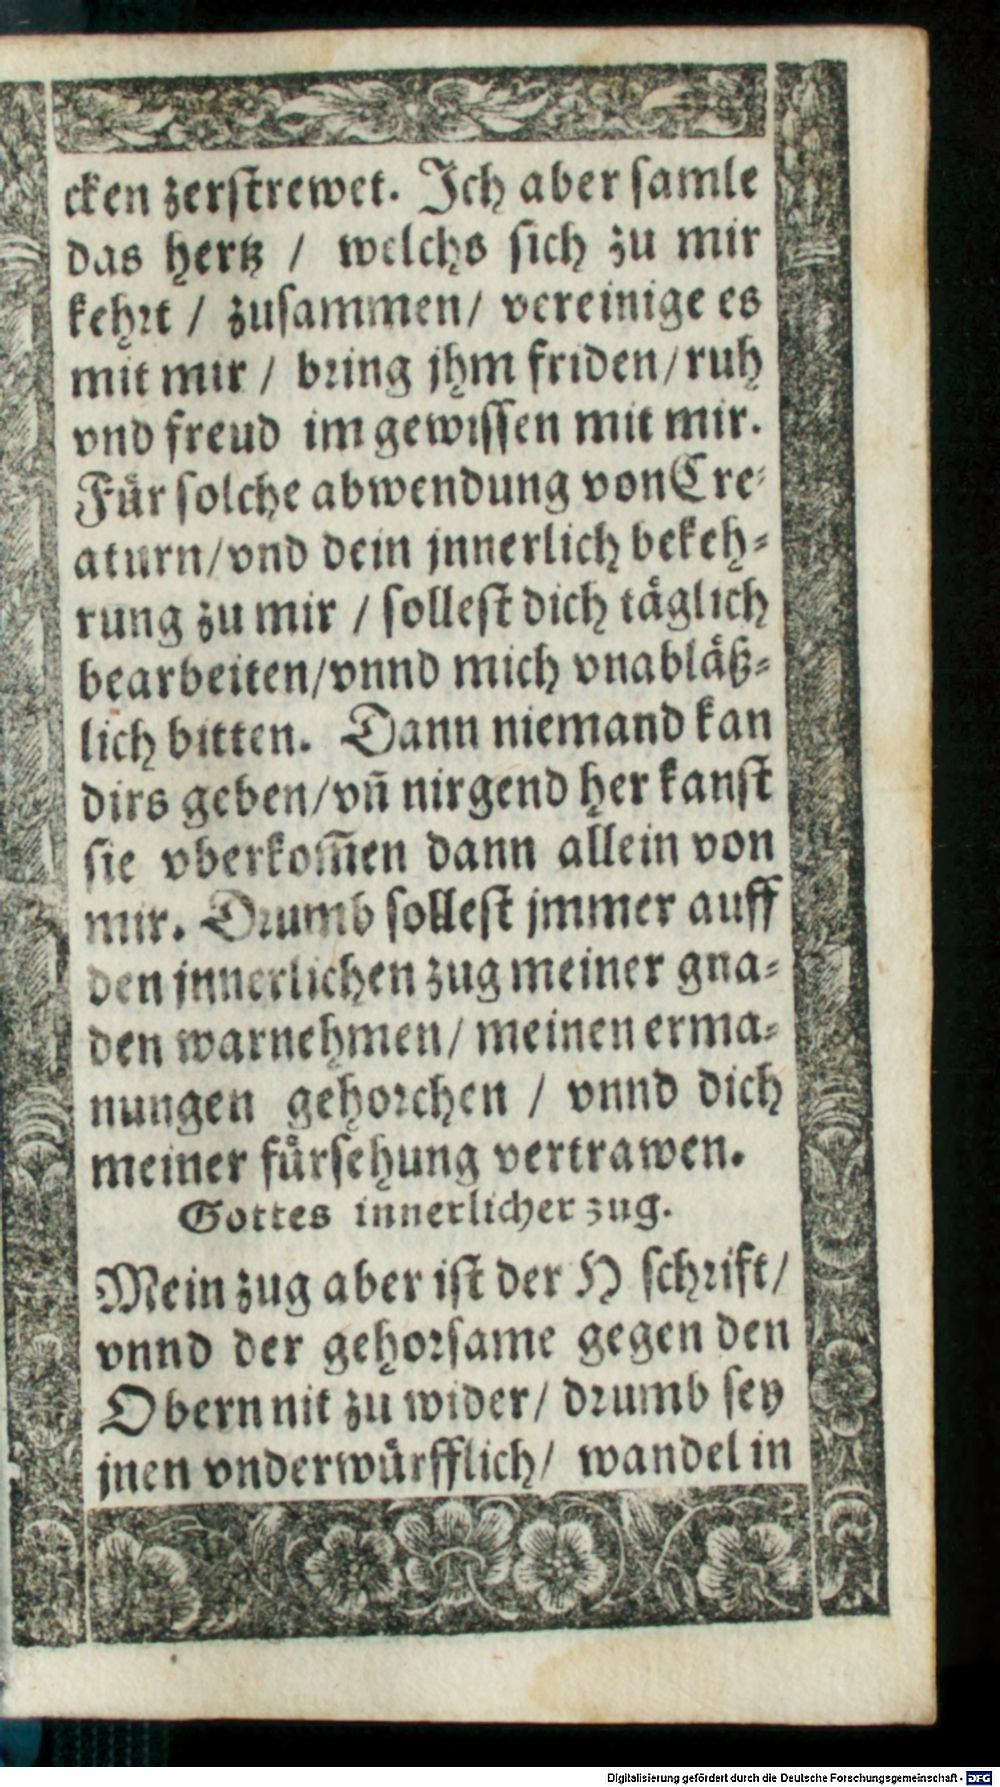 cken zerstrewet. Ich aber samle
das hertz / welchs sich zu mir
kehrt / zusammen/ vereinige es
mit mir / bring jhm friden/ruh
vnd freud im gewissen mit mir.
Für solche abwendung von Cre-
aturn/vnd dein jnnerlich bekeh-
rung zu mir / sollest dich täglich
bearbeiten/vnnd mich vnabläß-
lich bitten. Dann niemand kan
dirs geben/vñ nirgend her kanst
sie vberkom̃en dann allein von
mir. Drumb sollest jmmer auff
den jnnerlichen zug meiner gna-
den warnehmen/ meinen erma-
nungen gehorchen / vnnd dich
meiner fürsehung vertrawen.
Gottes innerlicher zug.
Mein zug aber ist der H schrift/
vnnd der gehorsame gegen den
Obern nit zu wider/ drumb sey
jnen vnderwürfflich/ wandel in
Digitalisierung gefördert durch die Deutsche Forschungsgemeinschaft - DFG